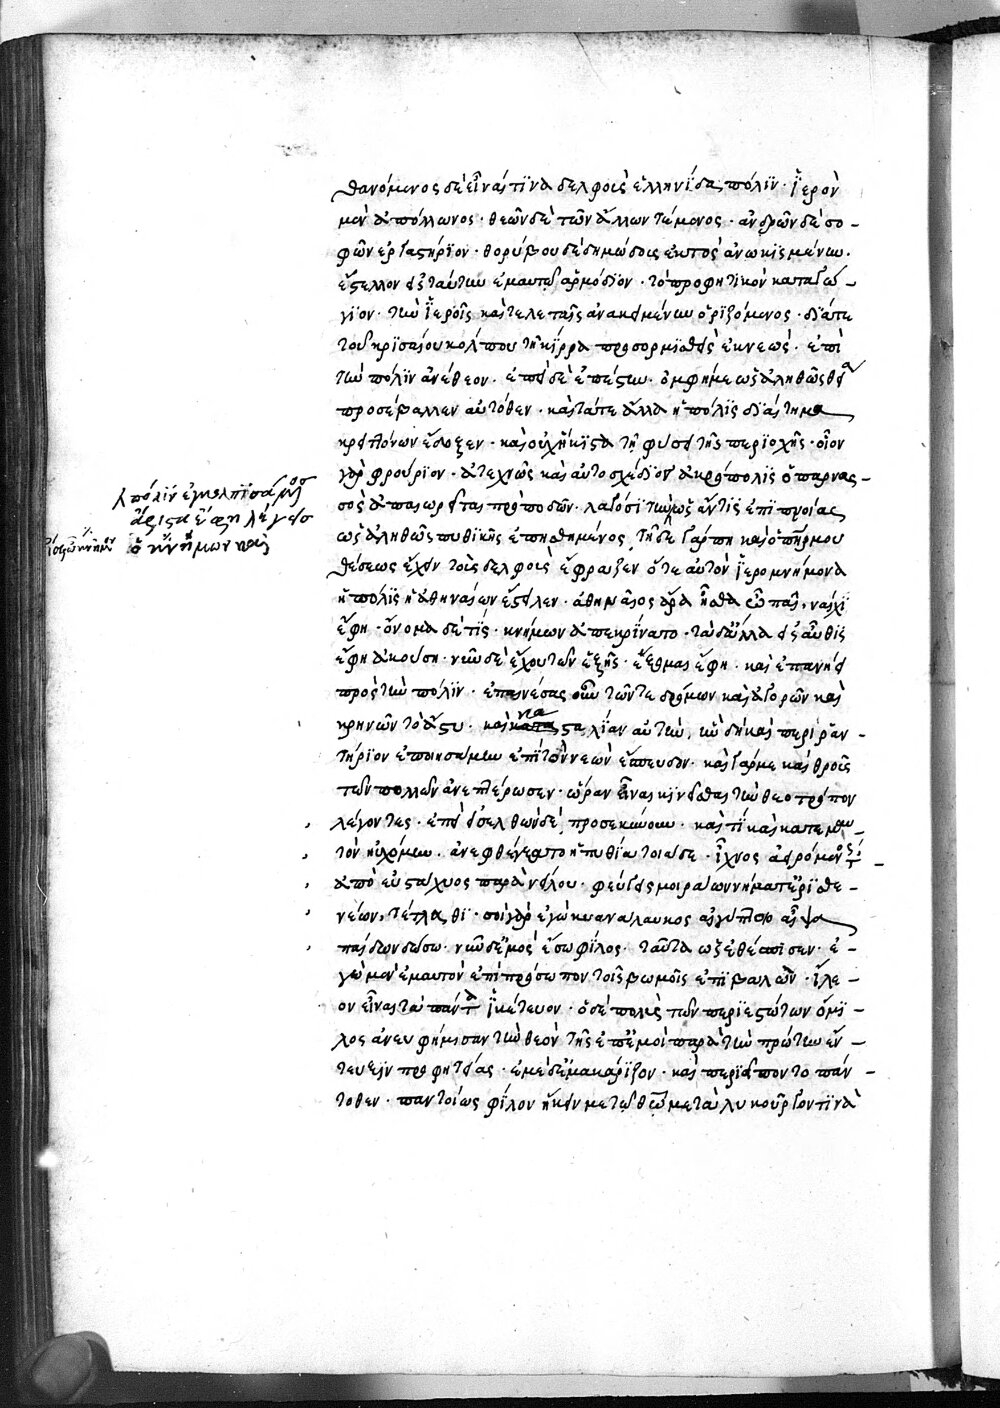 θανόμενος δὲ εἶναί τινα δελφοὺς ἑλληνίδα πόλϊν · ἱερὸν
μὲν ἀπόλλωνος · θεῶν δὲ τῶν ἄλλων τέμενος · ἀνδρῶν δὲ σο -
φῶν ἐργαστήριον · θορύβου δὲ δημώδους ἐκτὸς ἀνωκισμένην ·
ἔστελλον εἰς ταύτην ἐμαυτῷ ἁρμόδιον · τὸ προφητικὸν καταγώ -
γιον · τὴν ἱεροῖς καὶ τελεταῖς ἀνακειμένην ὁριζόμενος · διά τε
τοῦ κρισαίου κόλπου τῇ κίρρᾳ προσορμισθεὶς ἐκ νεὼς · ἐπὶ
τὴν πόλιν ἀνέθεον · ἐπεὶ δὲ ἐπέστην · ὀμφή με ὡς ἀληθῶς θεία
προσέβαλλεν αὐτόθεν · καὶ τά τε ἄλλα ἡ πόλις διαίτημα
κρειττόνων ἔδοξεν · καὶ οὐχ ἥκιστα τῇ φύσει τῆς περιοχῆς · οἷον
γὰρ φρούριον · ἀτεχνῶς καὶ αὐτοσχέδιον ἀκρόπολις ὁ παρνασ -
σὸς ἀπαιωρεῖται προπόδων · λαγόσι τὴν ὡς ἄν τις ἐπιπνοίας
ὡς ἀληθῶς πυθικῆς ἐπησθημένος · τῇδε γάρ πη καὶ ὁ πῆρ μου
θέσεως ἔχειν τοὺς δελφοὺς ἔφραζεν ὅτε αὐτὸν ἱερομνήμονα
ἡ πόλις ἡ ἀθηναίων ἔστειλεν · ἀθηναῖος ἄρα ἦσθα ὦ παῖ · ναίχϊ
ἔφη · ὄνομα δὲ τίς · κνήμων ἀπεκρίνατο · τὰ δ' ἄλλα εἰς αὖθις
ἔφη ἀκούσῃ · νῦν δὲ ἔχου τῶν ἑξῆς · ἕξομαι ἔφη · καὶ ἐπανῄει
πρὸς τὴν πόλιν · ἐπαινέσας οὖν τῶν τε δρόμων καὶ ἀγορῶν καὶ
κρηνῶν τὸ ἄστυ · καὶ κασταλίαν αὐτὴν, ὡ δὴ καὶ περιρραν -
τήριον ἐποιησάμην ἐπὶ τὸν νεὼν ἔσπευδον · καὶ γάρ με καὶ θροῦς
τῶν πολλῶν ἀνεπτέρωσεν · ὥραν εἶναι κινεῖσθαι τὴν θεοπρόπον
λέγοντες · ἐπεὶ εἰσελθὼν δὲ, προσεκύνουν · καὶ τί καὶ κατ' ἐμαυ -
τὸν ηὐχόμην · ἀνεφθέγξατο ἡ πυθία τοιάδε · ἴχνος ἀειρόμενος
ἀπὸ εὐστάχυος παρὰ νείλου · φεύγεις μοιράων νήματ' ἐρισθε -
νέων, τέτλαθι · σοὶ γὰρ ἐγὼ κυαναύλακος αἰγύπτοιο αἶψα
παίδων δώσω · νῦν δ' ἐμὸς ἔσσω φίλος · ταῦτα ὡς ἐθέσπισεν · ἐ -
γὼ μὲν ἐμαυτὸν ἐπὶ πρόσωπον τοῖς βωμοῖς ἐπιβαλὼν · ἵλε -
ον εἶναι τὰ πάντα ἱκέτευον · ὁ δὲ πολὺς τῶν περιεστώτων ὅμι -
λος ἀνευφήμησαν τὸν θεὸν τῆς ἐπ' ἐμοὶ παρὰ τὴν πρώτην ἔν -
τευξιν προφητείας · ἐμὲ δ' ἐμακάριζον · καὶ περιεῖπον τὸ πάν -
τοθεν · παντοίως φίλον ἥκειν με τῷ θεῷ μετὰ λυκοῦργόν τινα
πόλιν ἐγκολπισάμενος
ἄριστα ἔφη λέγεις
ὁ κνήμων καὶ